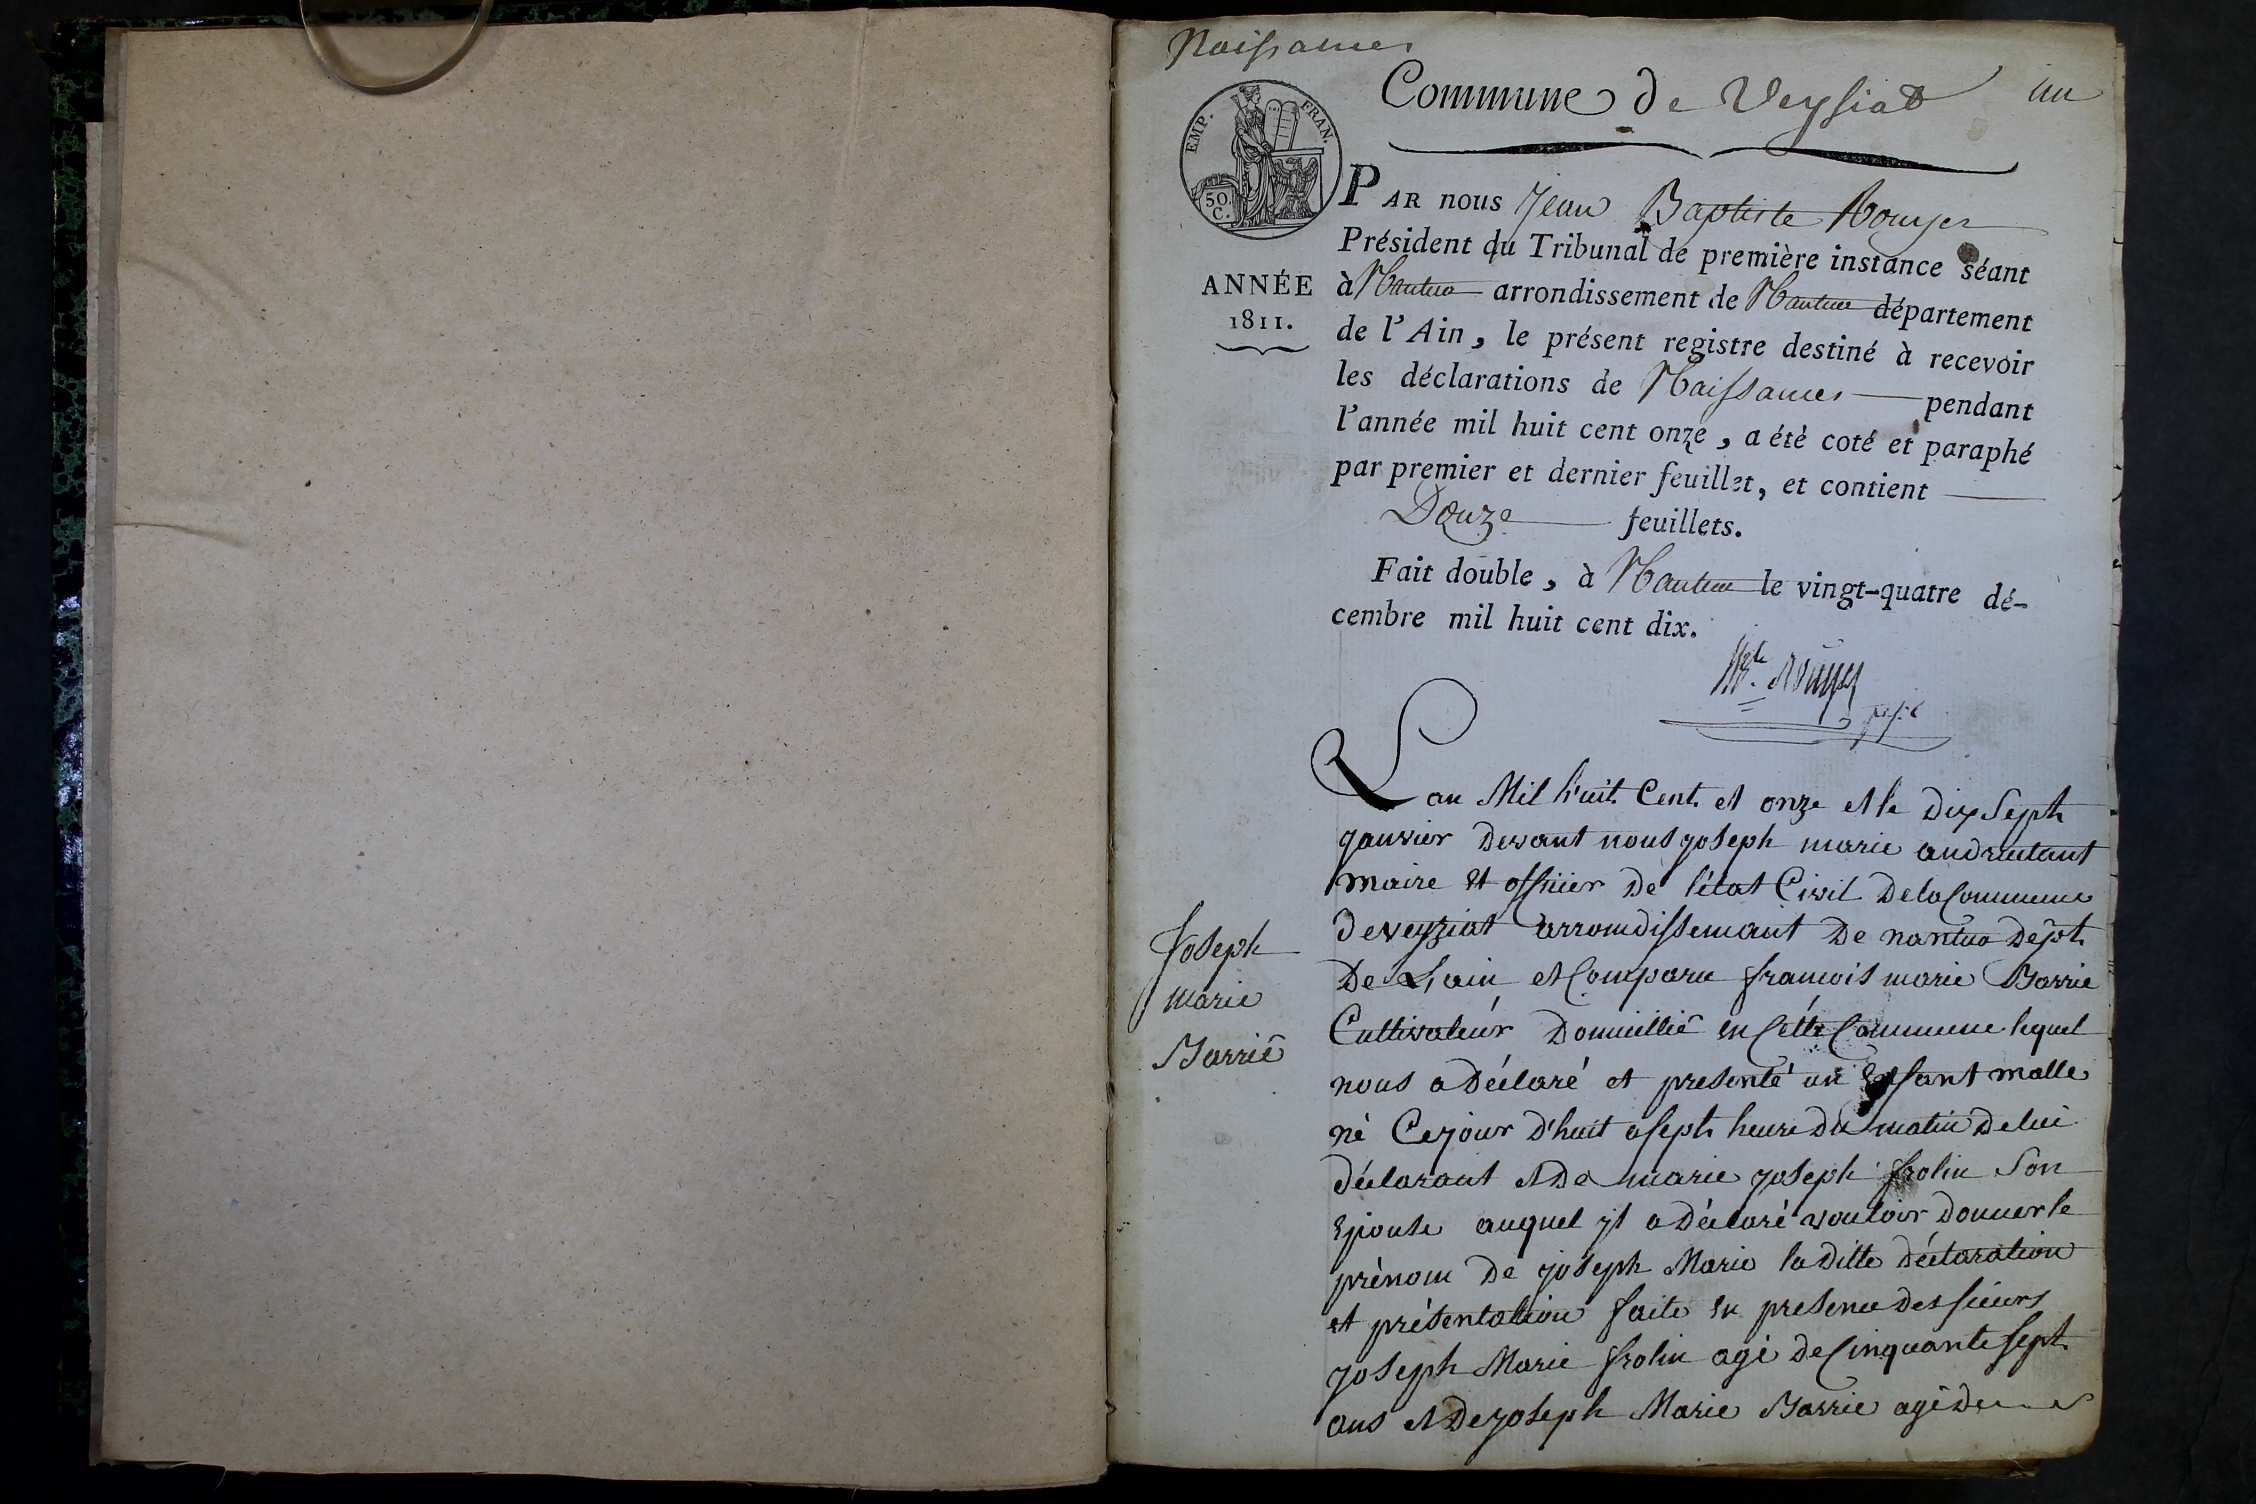 Naissances
Commune de Veysiat
un
EMP. FRAN.
50.
C.
ANNÉE
1811.
PAR nous Jean Baptiste Rouyer
Président du Tribunal de première instance séant
à Nantua arrondissement de Nantua département
de l'Ain, le présent registre destiné à recevoir
les déclarations de Naissances pendant
l'année mil huit cent onze, a été coté et paraphé
par premier et dernier feuillet, et contient
Douze feuillets.
Fait double, à Nantua le vingt-quatre dé-
cembre mil huit cent dix.
Bte. Rouyer
Lan Mil huit Cent et onze et le Dix Sept
janvier devant nous joseph marie andruitant
maire et officier De l'état Civil De la Commune
de veyziat arromdissemant De nantua Dept.
De L'ain et Comparu francois marie Barrie
Cultivateur Domicillié en Cette Commune lequel
nous a Déclaré et presenté un Enfant malle
né Cejour d'huit a sept heure Du matin De lui
déclarant et De marie joseph frolin Son
Epouse auquel jl a Déclaré vouloir donner le
prènom De joseph Marie la ditte déclaration
et présentation faite en presence des sieurs
joseph Marie frolin agé de Cinquante sept
ans et De joseph Marie Barrie agé De
Joseph
marie
Barrié